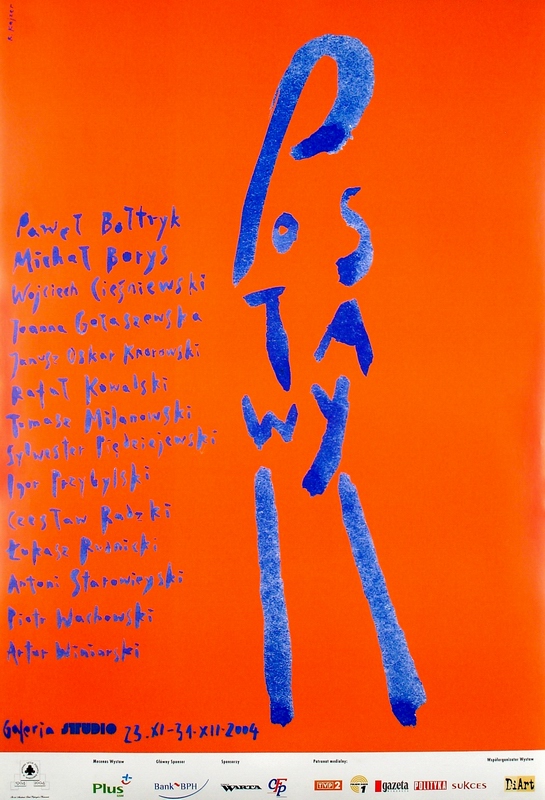 R. Kajzer
POSTAWY
Paweł Bołtryk
Michał Borys
Wojciech Cieśniewski
Joanna Gołaszewska
Janusz Oskar Knorowski
Rafał Kowalski
Tomasz Milanowski
Sylwester Piędziejewski
Igor Przybylski
Czesław Radzki
Łukasz Rudnicki
Antoni Starowieyski
Piotr Wachowski
Artur Winiarski
Galeria STUDIO 23.XI-31.XII-2004
Mecenas Wystaw Główny Sponsor Sponsorzy Patronat medialny: Współorganizator Wystaw
Plus Bank BPH WARTA CFP TVP2 gazeta POLITYKA SUKCES DiArt